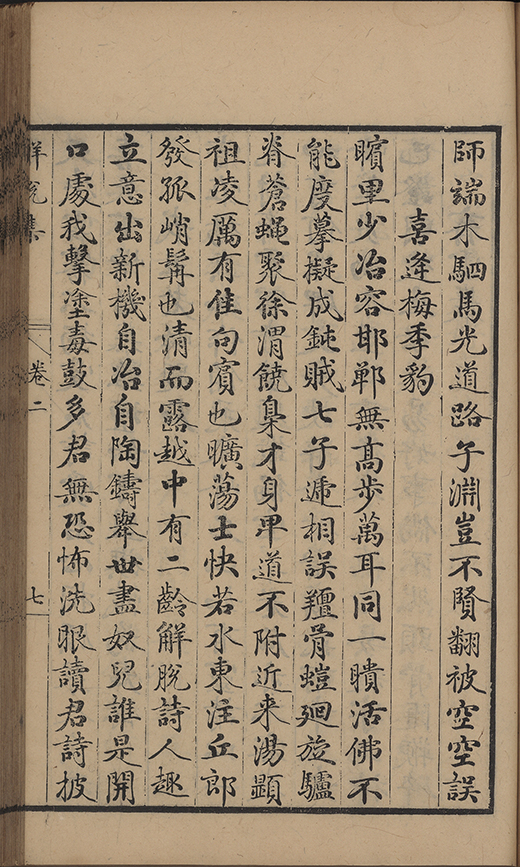 師端木駟馬光道路子淵豈不賢翻被空空誤
喜逢梅季豹
矉里少冶容邯鄲無高步萬耳同一瞶活佛不
能度摹擬成鈍賊七子遞相誤羶骨螘廻旋驢
脊蒼蝇聚徐渭饒梟才身卑道不附近来湯顕
祖凌厲有佳句賓也曠蕩士快若水東注丘郎
發孤峭髯也清而露越中有二齡解脫詩人趣
立意出新機自冶自陶鑄舉世盡奴兒誰是開
口處我擊塗毒鼓多君無恐怖洗眼讀君詩披
解脫集
卷二
七